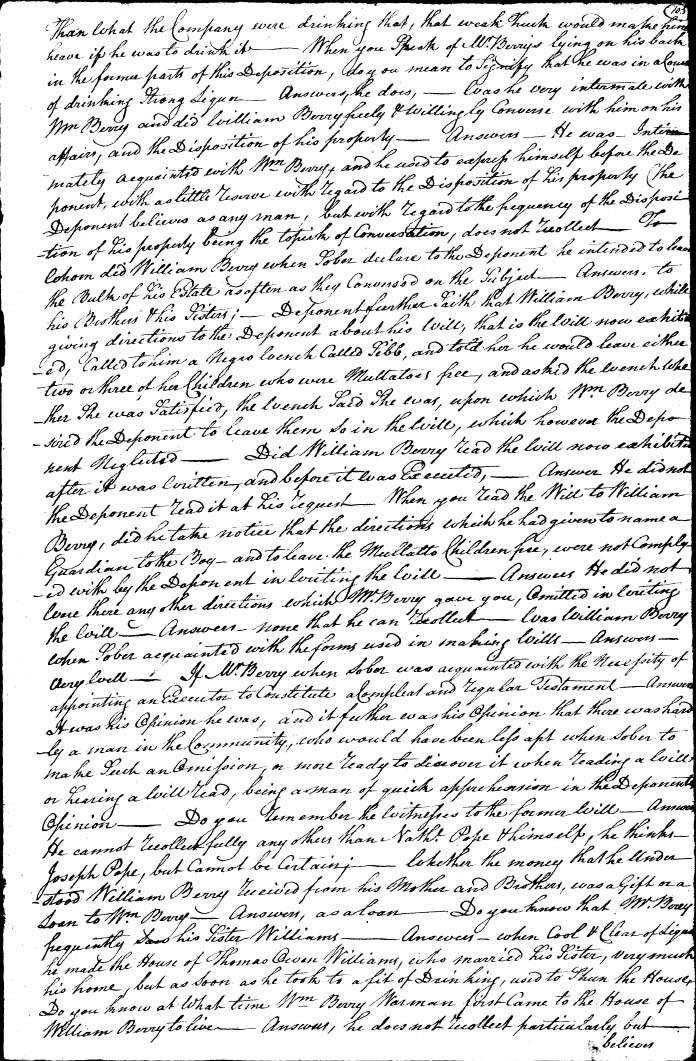 103
Than what the Company were drinking that, that weak Thuck would make him
heave if he was to drink it — When you Speak of Mr. Berrys lying on his back
in the former parts of this Deposition, do you mean to Signify that he was in a Course
of drinking Strong Liquor — Answers, he does, — Was he very intermate with
Wm Berry and did William Berry freely & Willingly Converse with him on his
affairs, and the Disposition of his property — Answers — He was Inti-
mately acquainted with Wm Berry, and he used to express himself before the De-
ponent, with as little reserve with regard to the Disposition of his property (the
Deponent believes as any man, but with regard to the frequency of the Disposi-
-tion of his property being the topick of Conversation, does not recollect — To
whom did William Berry when Sober declare to the Deponent he intended to leave
the Bulk of his Estate as often as they Conversed on the Subject — Answers. to
his Brothers & his Sisters; — Deponent further Saith that William Berry, while
giving directions to the Deponent about his Will, that is the Will now exhibit-
-ed, Called to him a Negro wench Called Tibb, and told her he would leave either
two or three of her Children who were Mullatoes free, and asked the wench whe-
ther She was Satisfied, the wench Said She was, upon which Wm Berry de-
-sired the Deponent to leave them so in the Will, which however the Depo-
nent Neglected — Did William Berry read the Will now exhibited
after it was written, and before it was Executed, — Answer He did not
the Deponent read it at his request — When you read the Will to William
Berry, did he take notice that the directions which he had given to name a
Guardian to the Boy — and to leave the Mullatto Children free, were not Comply-
-ed with by the Deponent in writing the Will — Answers He did not
Were there any other directions which Mr. Berry gave you, Omitted in writing
the Will — Answers — none that he can recollect — Was William Berry
when Sober acquainted with the forms used in making Wills — Answers —
Very Well — If Mr. Berry when sober was acquainted with the Necessity of
appointing an Executor to Constitute a Compleat and regular Testament — Answers
It was his Opinion he was, and it further was his Opinion that there was hard-
-ly a man in the Community, who would have been less apt when Sober to
make Such an Omission, or more ready to discover it when reading a Will
or hearing a Will read, being a man of quick apprehension in the Deponents
Opinion — Do you remember the Witnesses to the former Will — Answers
He cannot recollect fully any others than Nathl. Pope & himself, he thinks
Joseph Pope, but Cannot be Certain; — Whether the money that he Under-
-stood William Berry received from his Mother and Brothers, was a Gift or a
Loan to Wm Berry — Answers, as a loan — Do you know that Mr. Berry
frequently Saw his Sister Williams — Answers — when Cool & Clear of Liquor
he made the House of Thomas Owen Williams, who married his Sister, very much
his home, but as soon as he took to a fit of Drinking, used to Shun the House,
Do you know at what time Wm Berry Warman first Came to the House of
William Berry to live — Answers, he does not recollect particularly but
believes